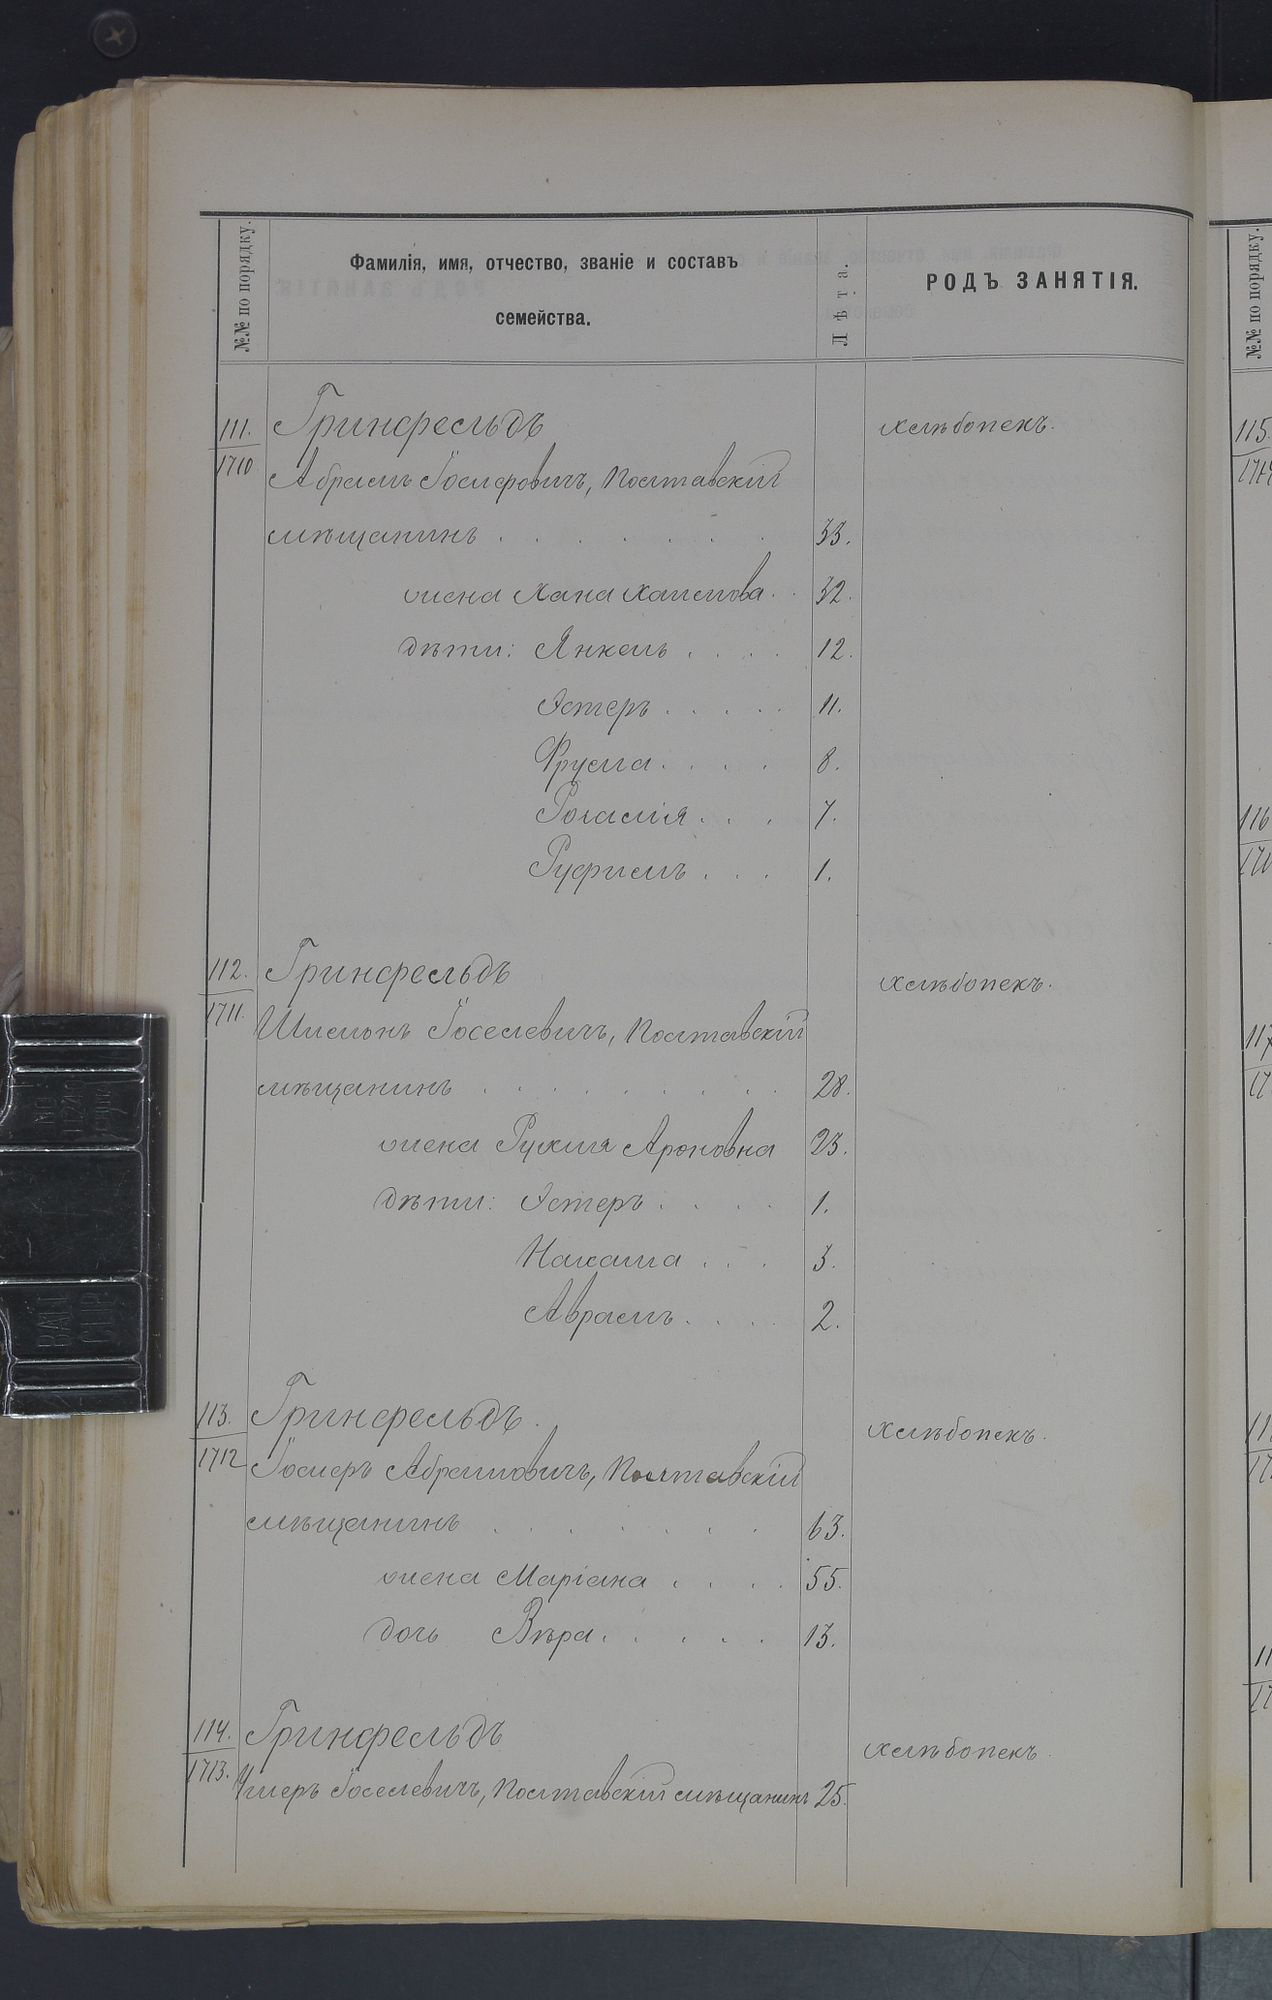 №№ по порядку.
Фамилія, имя, отчество, званіе и составъ
семейства.
Лѣта.
РОДЪ ЗАНЯТІЯ.
111. Гринфельдъ хлѣбопекъ.
1710 Абрамъ Іосифовичъ, Полтавскій
мѣщанинъ . . . . . . . 33.
жена Хана Хаимова . . 32.
дѣти: Янкель . . . . 12.
Эстеръ . . . . . 11.
Фрума . . . . 8.
7.
1.
112. Гринфельдъ хлѣбопекъ.
1711. Шлемонъ Іоселевичъ, Полтавскій
мѣщанинъ . . . . . . . . 28.
жена Ароновна 23.
дѣти: Эстеръ . . . . 1.
Нахама . . . 3.
Аврамъ . . . . 2.
113. Гринфельдъ. хлѣбопекъ.
1712 Абрамовичъ, Полтавскій
мѣщанинъ . . . . . . . 63.
жена Маріана . . . . 55.
дочь Вѣра . . . . . 13.
114. Гринфельдъ хлѣбопекъ.
1713. Іоселевичъ, Полтавскій мѣщанинъ 25.
№№ по порядку.
115.
116
117
BALL
CLIP